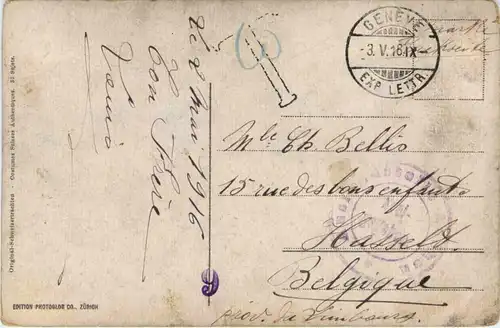 Le 2 Mai 1916
Ton Frère
GENÈVE
-3.V.16.IX
EXP. LETTR.
Mlle Ch. Bellis
15 rue des bons enfants
Hasselt
Belgique
prov. de Limbourg
Original-Schweizertrachten - Costumes Suisses Authentiques. 25 Sujets.
EDITION PHOTOGLOB CO., ZÜRICH
9